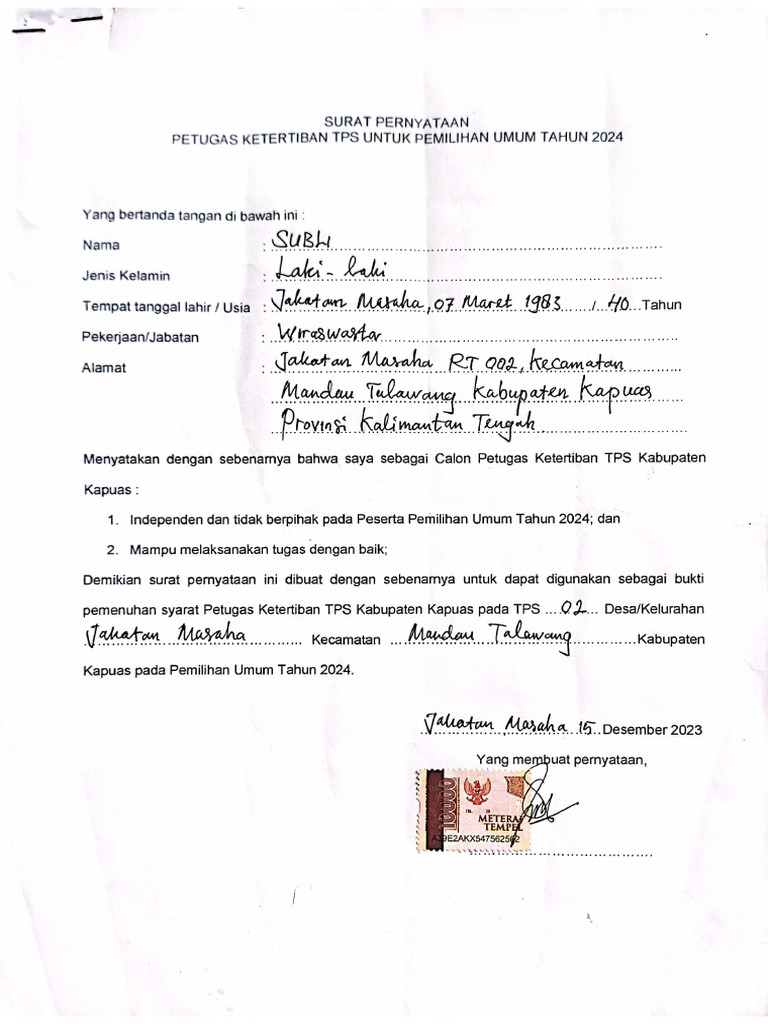 SURAT PERNYATAAN
PETUGAS KETERTIBAN TPS UNTUK PEMILIHAN UMUM TAHUN 2024
Yang bertanda tangan di bawah ini :
Nama : SUBLI
Jenis Kelamin : Laki-laki
Tempat tanggal lahir / Usia : Jakatan Masaha, 07 Maret 1983 / 40 Tahun
Pekerjaan/Jabatan : Wiraswasta
Alamat : Jakatan Masaha RT 002, Kecamatan
Mandau Talawang Kabupaten Kapuas
Provinsi Kalimantan Tengah
Menyatakan dengan sebenarnya bahwa saya sebagai Calon Petugas Ketertiban TPS Kabupaten
Kapuas :
1. Independen dan tidak berpihak pada Peserta Pemilihan Umum Tahun 2024; dan
2. Mampu melaksanakan tugas dengan baik;
Demikian surat pernyataan ini dibuat dengan sebenarnya untuk dapat digunakan sebagai bukti
pemenuhan syarat Petugas Ketertiban TPS Kabupaten Kapuas pada TPS ... 02 ... Desa/Kelurahan
Jakatan Masaha ............ Kecamatan ... Mandau Talawang ............ Kabupaten
Kapuas pada Pemilihan Umum Tahun 2024.
Jakatan Masaha 15 Desember 2023
Yang membuat pernyataan,
10000
METERAI
TEMPEL
A39E2AKX547562562